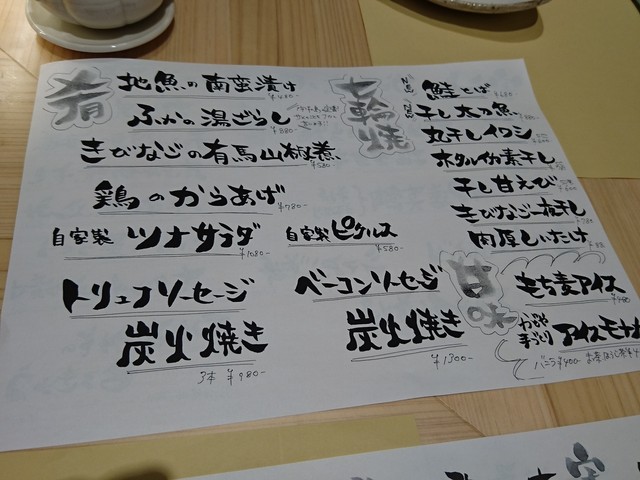 肴
地魚の南蛮漬け
ふかの湯ざらし
¥880-
きびなごの有馬山椒煮
¥580-
鶏のからあげ
¥780-
自家製 ツナサラダ
¥1080-
自家製 ピクルス
¥580-
トリュフソーセージ
炭火焼き
3本 ¥980-
ベーコンソーセージ
炭火焼き
¥1300-
七輪焼
鮭とば
干し太刀魚
丸干しイワシ
ホタルイカ素干し
干し甘えび
きびなご一夜干し
肉厚しいたけ
甘味
もち麦アイス
手づくり
アイスモナカ
バニラ¥400-